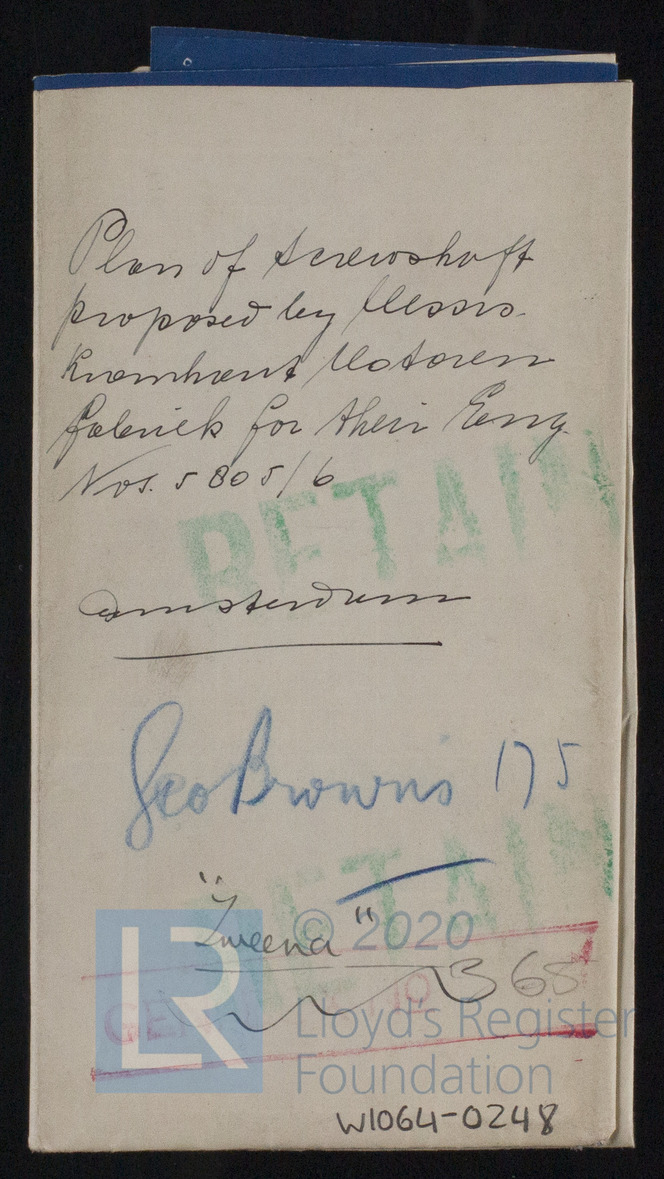 Plan of screwshaft
proposed by Messrs.
Kromhout Motoren
fabriek for their Eng.
Nos. 5805/6
RETAIN
Amsterdam
Geo Browns 175
RETAIN
"Zweena"
© 2020
B 65
LR
Lloyd's Register
Foundation
W1064-0248